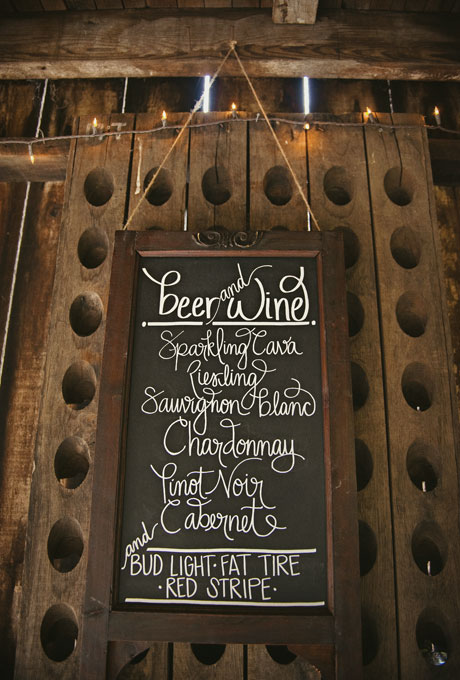 beer and Wine
Sparkling Cava
Riesling
Sauvignon blanc
Chardonnay
Pinot Noir
Cabernet
and
BUD LIGHT · FAT TIRE
· RED STRIPE ·